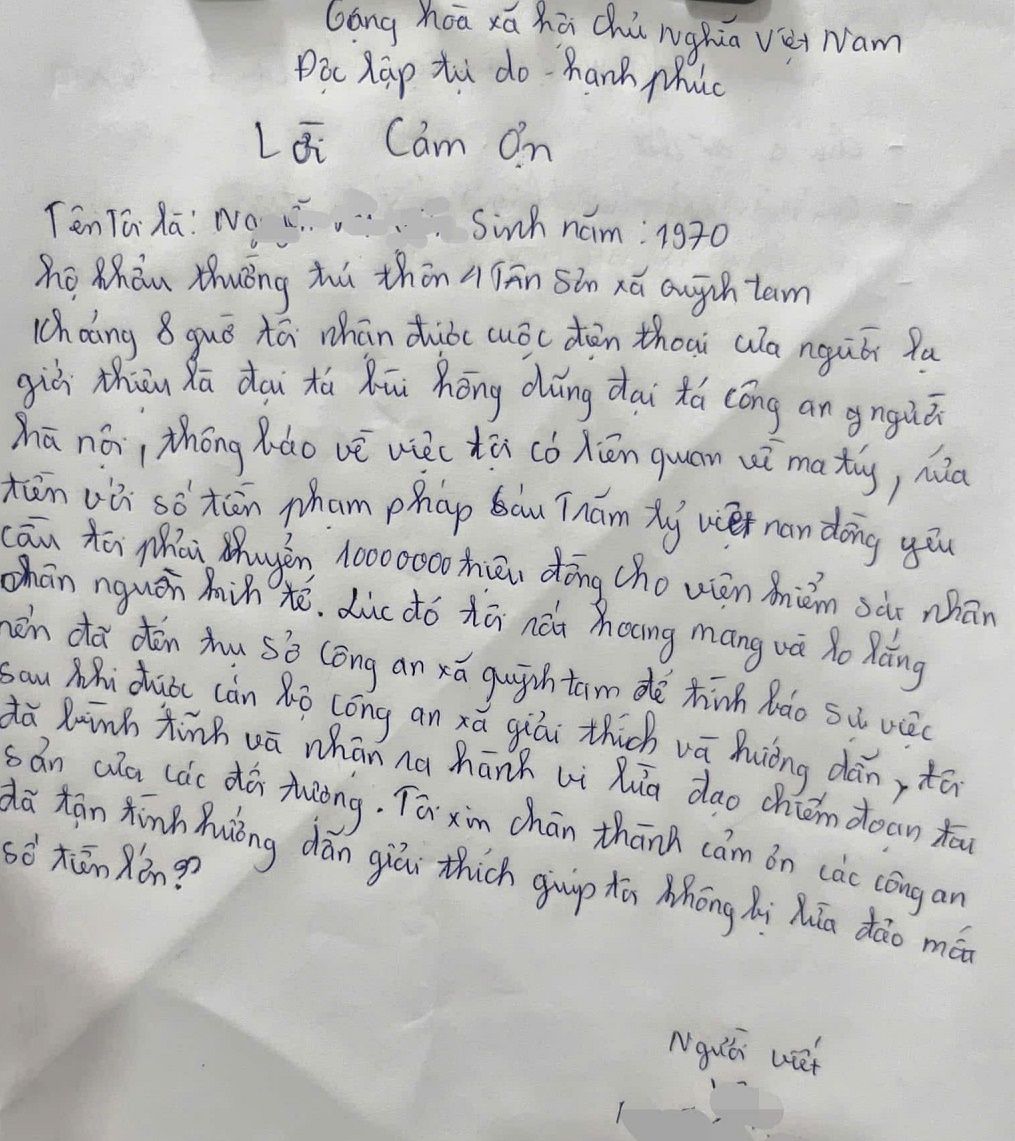 Cộng hoà xã hội chủ nghĩa Việt Nam
Độc lập tự do - hạnh phúc
Lời Cảm ơn
Tên Tôi là: Ng Sinh năm: 1970
hộ khẩu thường trú thôn 4 Tân Sơn xã quỳnh tam
Khoảng 8 giờ tôi nhận được cuộc điện thoại của người lạ
giới thiệu là đại tá bùi hồng dũng đại tá công an người
hà nội, thông báo về việc tôi có liên quan về ma túy, rửa
tiền với số tiền phạm pháp sáu Trăm tỷ việt nan đồng yêu
cầu tôi phải chuyển 10000000 triệu đồng cho viện kiểm sát nhân
nhân nguồn kinh tế. Lúc đó tôi rất hoang mang và lo lắng
nên đã đến trụ sở công an xã quỳnh tam để trình báo sự việc
sau khi được cán bộ công an xã giải thích và hướng dẫn, tôi
đã bình tĩnh và nhận ra hành vi lừa đạo chiếm đoạn tài
sản của các đối tượng. Tôi xin chân thành cảm ơn các công an
đã tận tình hướng dẫn giải thích giúp tôi không bị lừa đảo mất
số tiền lớn?
Người viết